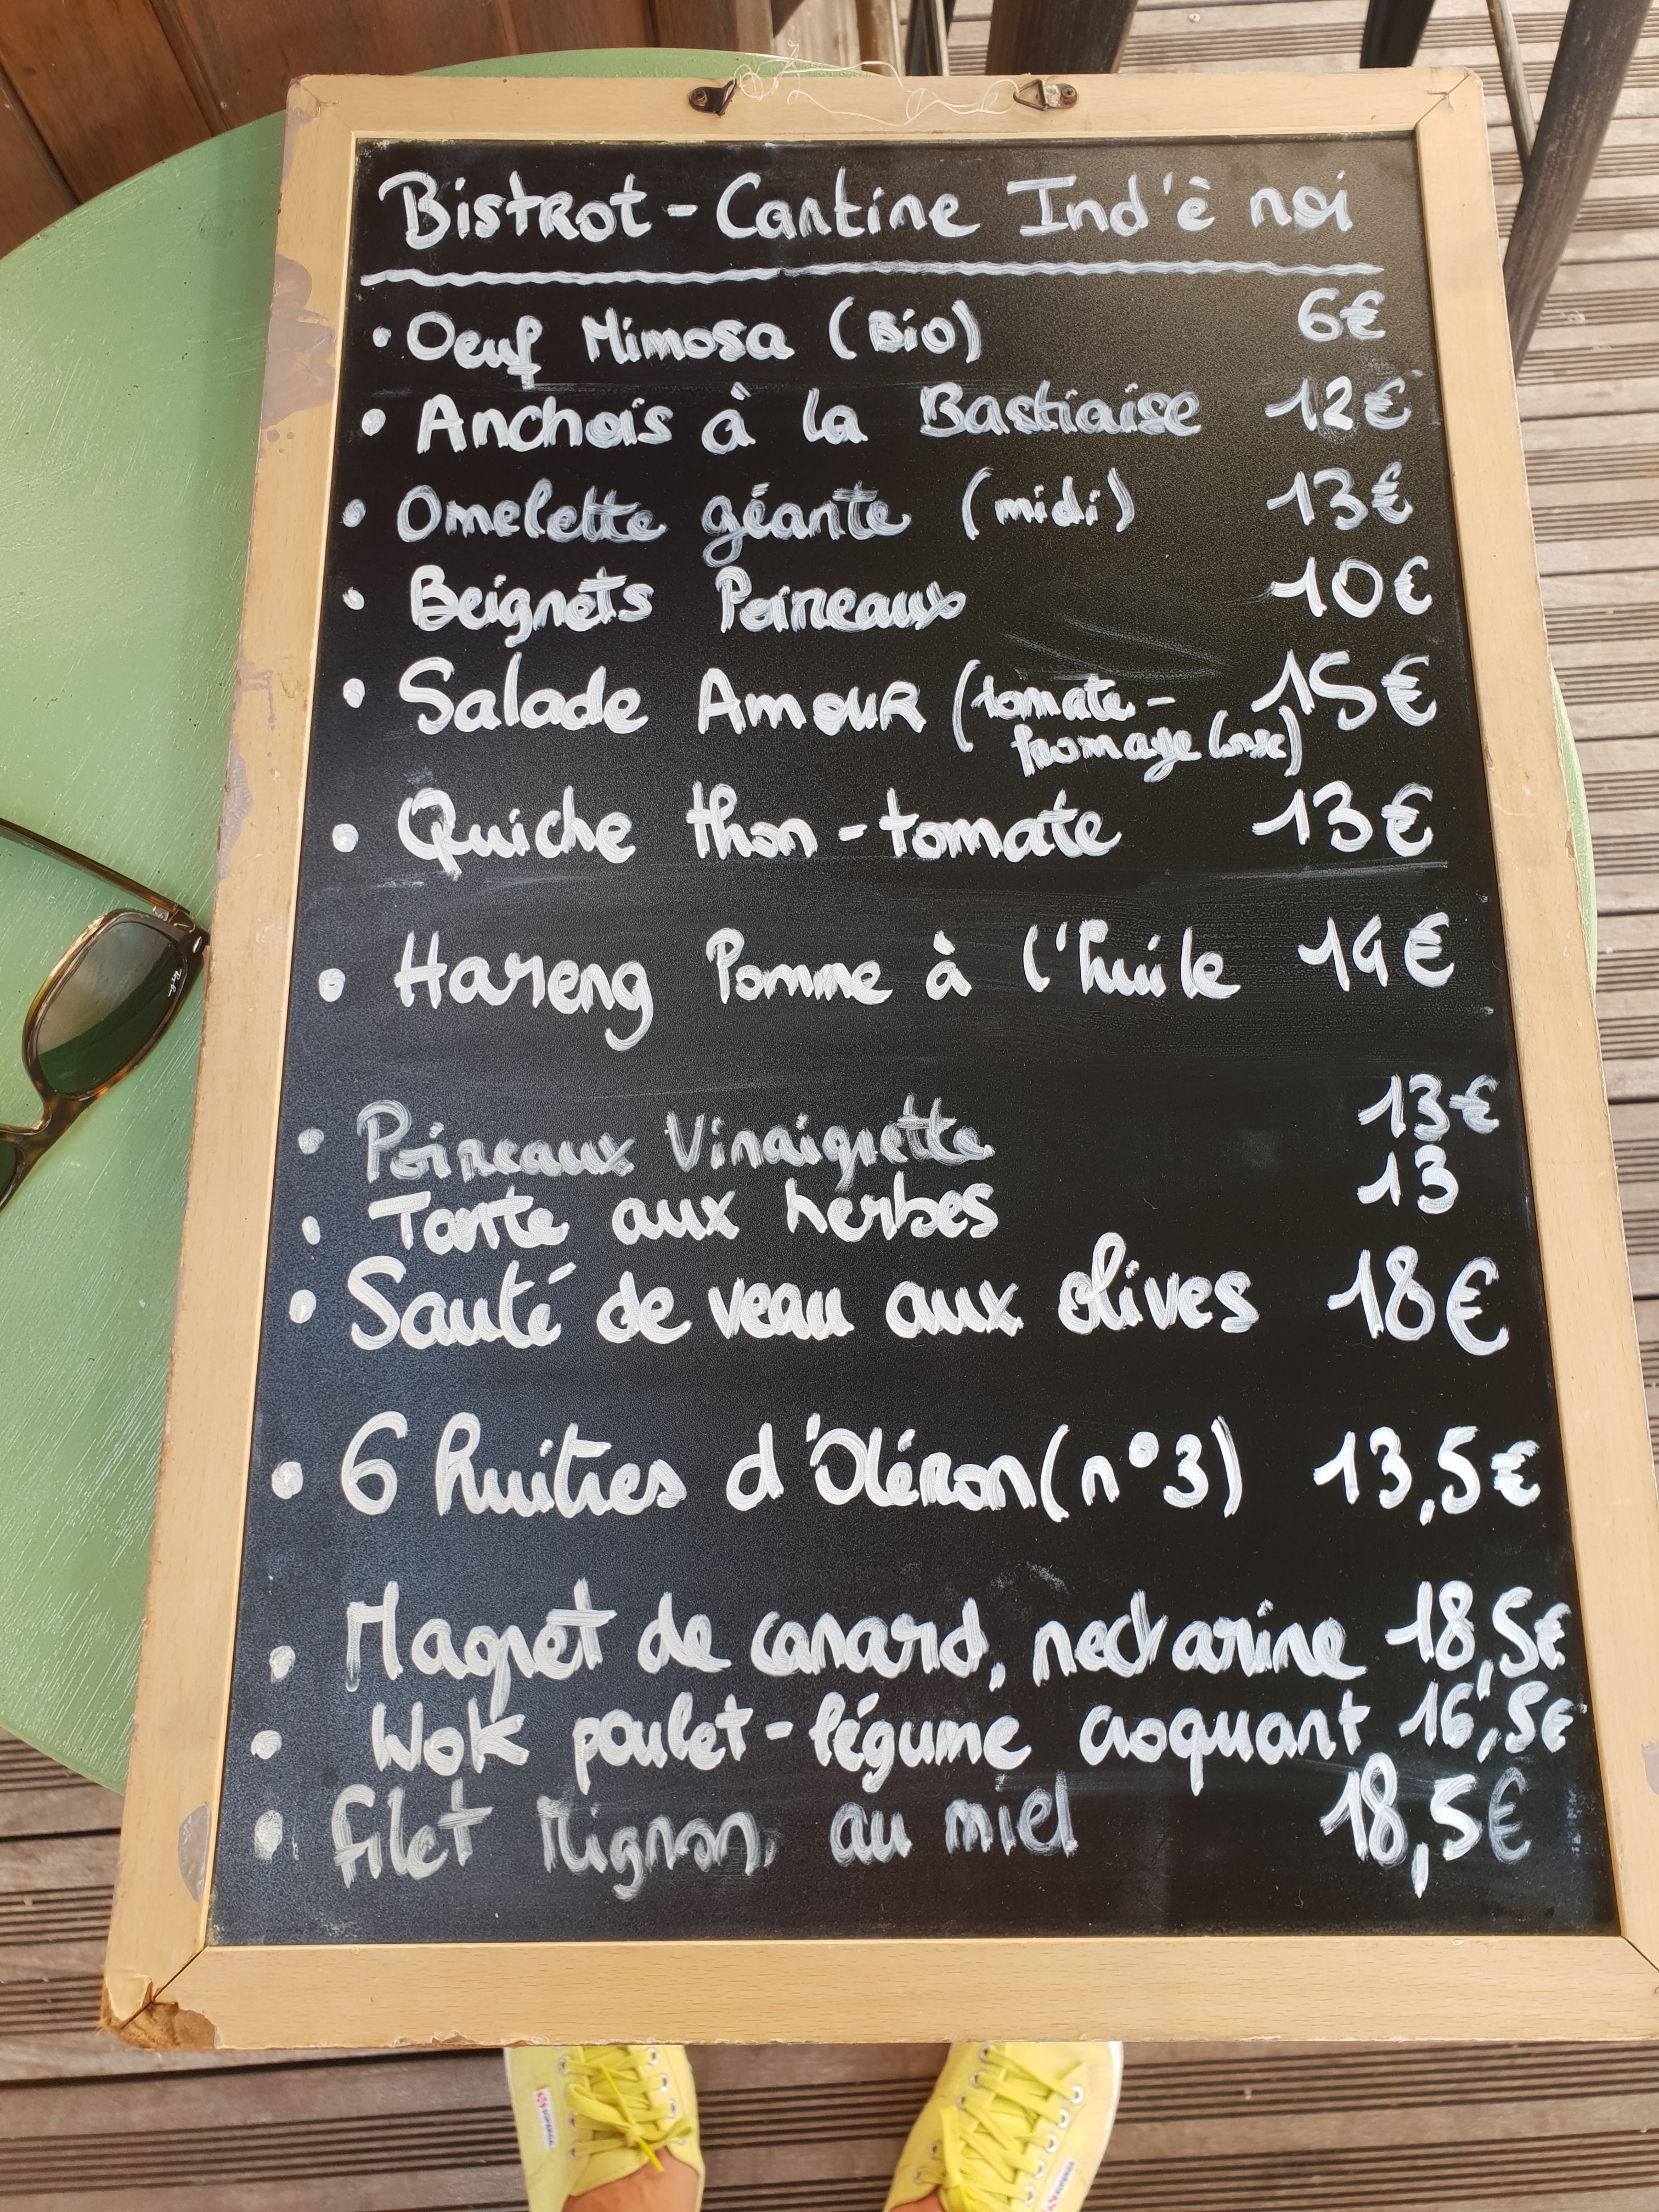 Bistrot - Cantine Ind'è noi
• Oeuf Mimosa (Bio) 6€
• Anchois à la Bastiaise 12€
• Omelette géante (midi) 13€
• Beignets Poireaux 10€
• Salade Amour (tomate - 15€
fromage corse)
• Quiche thon - tomate 13€
• Hareng Pomme à l'huile 14€
• Poireaux Vinaigrette 13€
• Tarte aux herbes 13
• Sauté de veau aux olives 18€
• 6 huitres d'Oléron (n°3) 13,5€
• Magret de canard, nectarine 18,5€
• Wok poulet - légume croquant 16,5€
• Filet Mignon, au miel 18,5€
Ray-Ban
SUPERGA